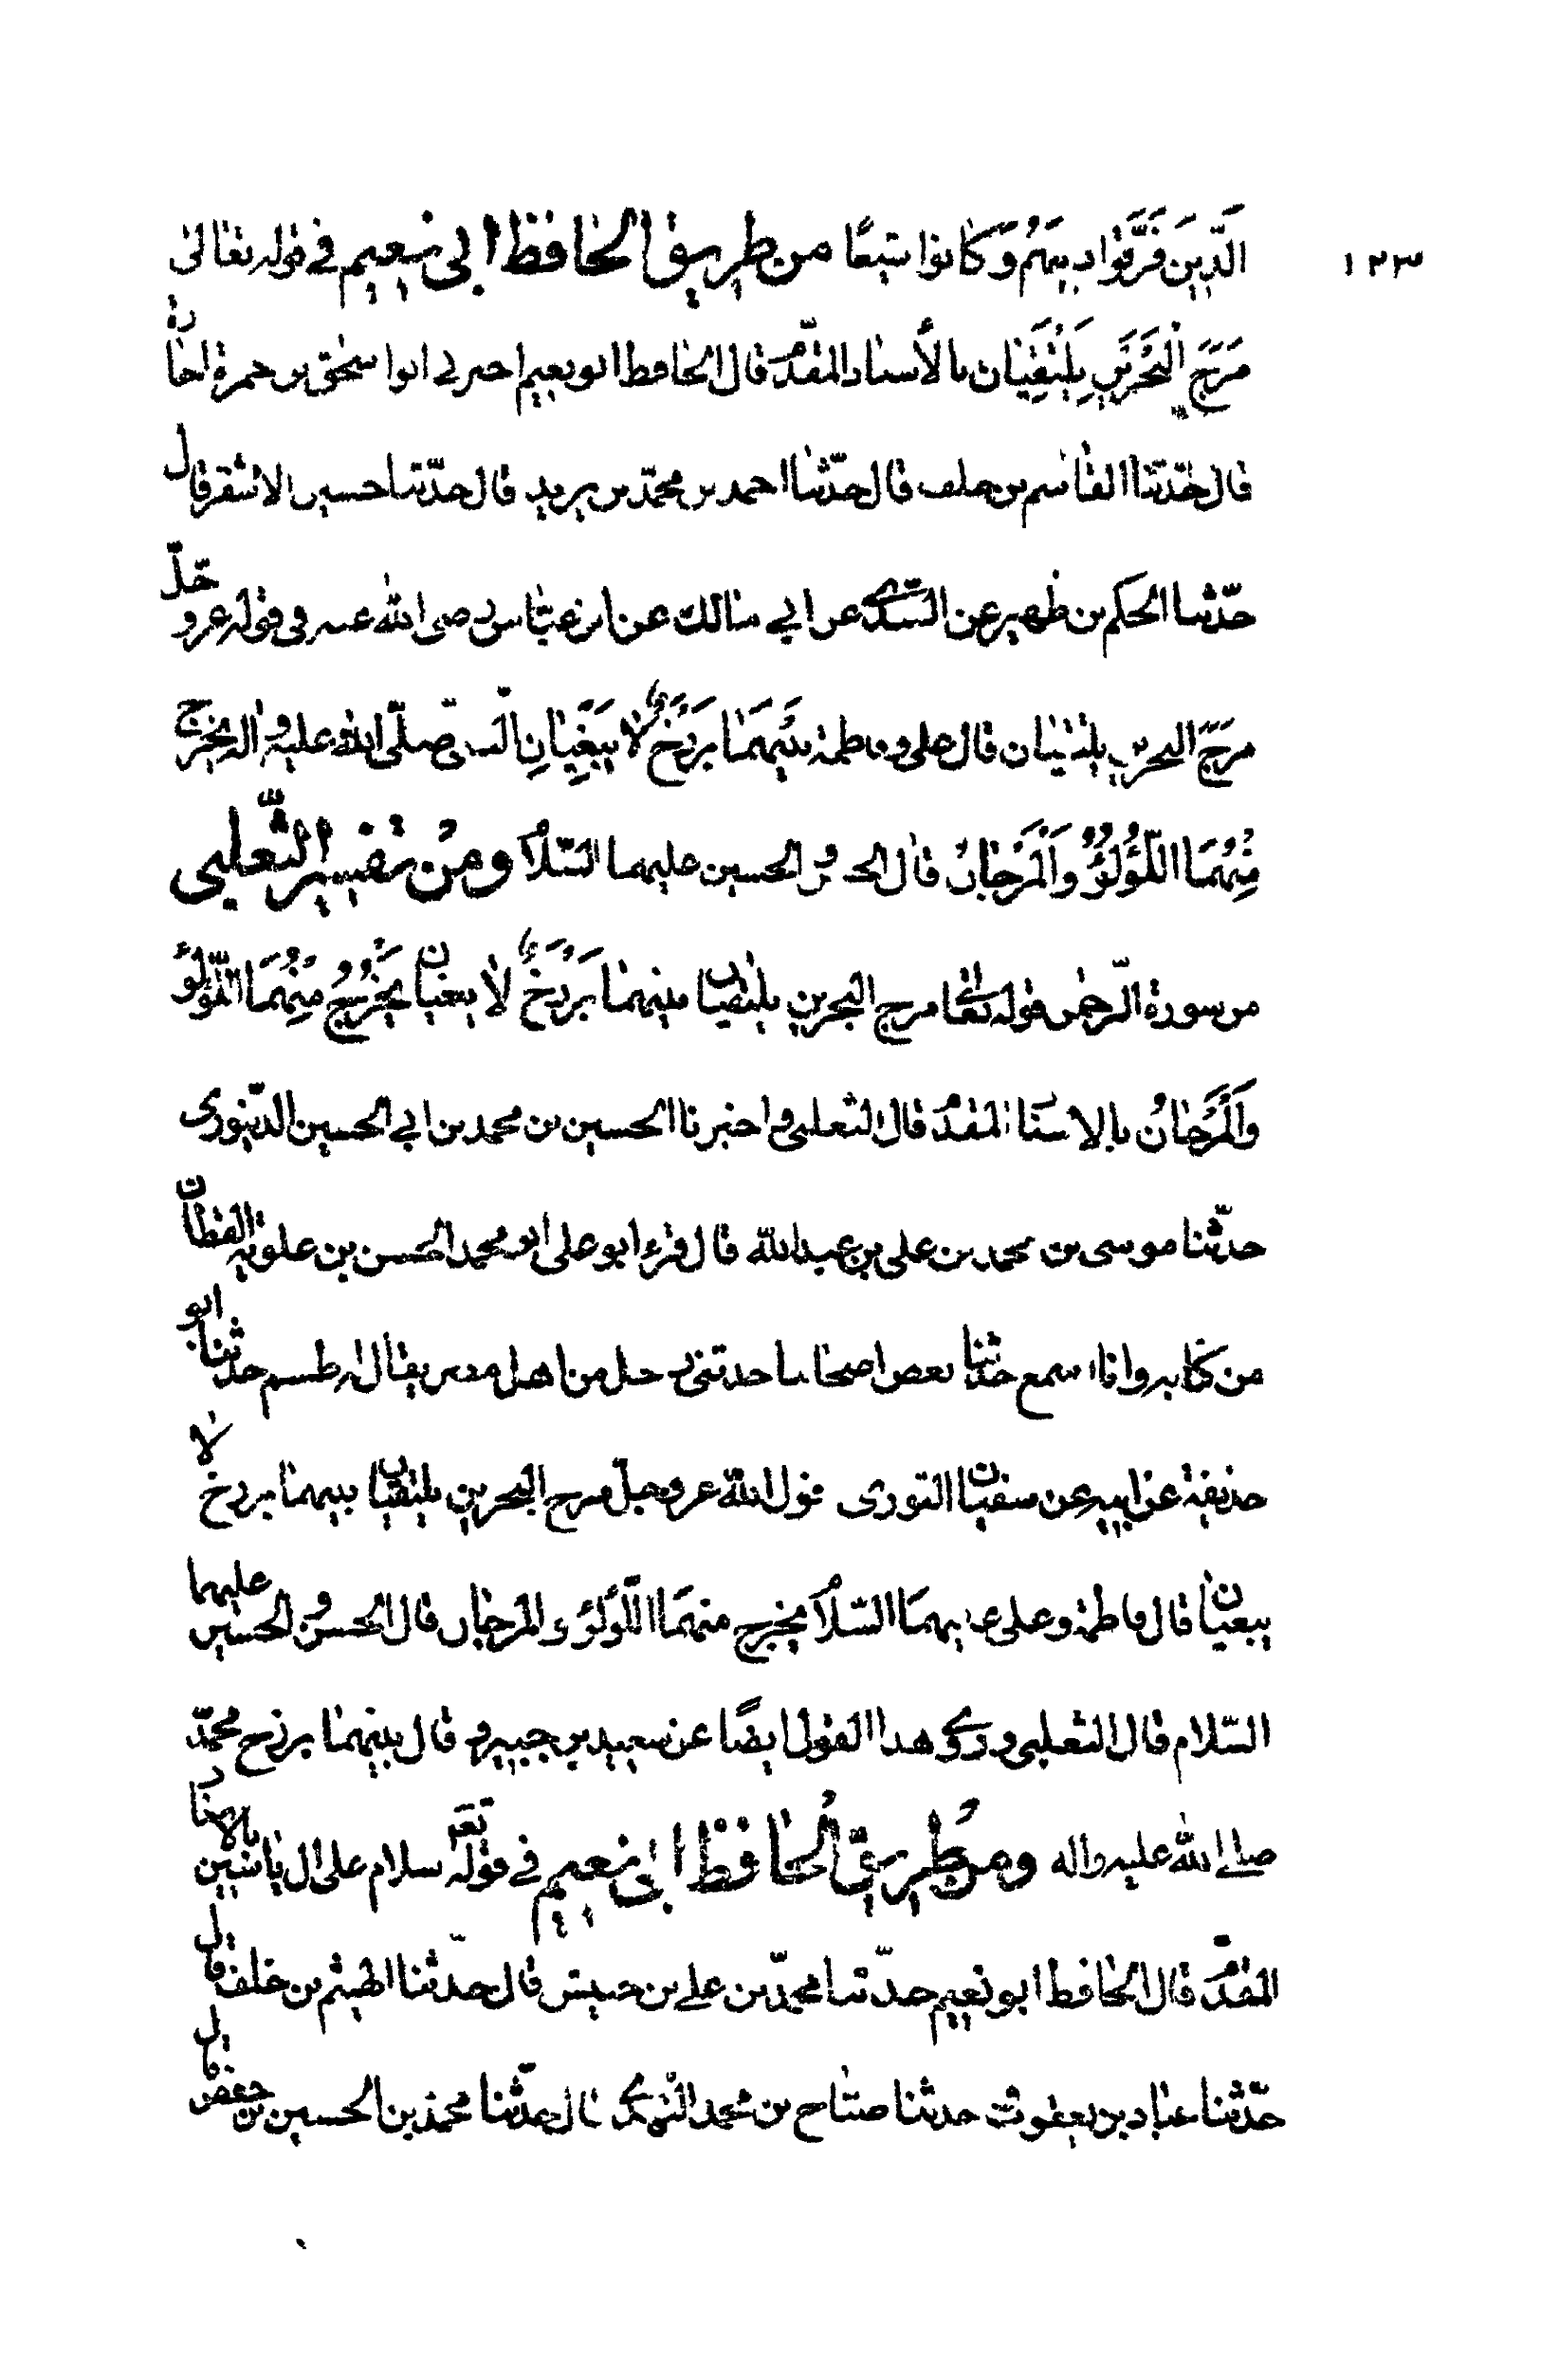 ١٢٣
الَّذِينَ فَرَّقُوا دِينَهُمْ وَكَانُوا شِيَعًا من طريق الحافظ ابى نعيم فى قوله تعالى
مَرَجَ الْبَحْرَيْنِ يَلْتَقِيَانِ بالأسناد المقدّم قال الحافظ ابو نعيم اخبرنى ابو اسحق بن حمزة اجازة
قال حدّثنا القاسم بن خلف قال حدّثنا احمد بن محمّد بن يزيد قال حدّثنا حسين الاشقر قال
حدّثنا الحكم بن ظهير عن السّدّى عن ابي مالك عن ابن عبّاس رضى الله عنه فى قوله عزو جلّ
مرج البحرين يلتقيان قال على وفاطمة بَيْنَهُمَا بَرْزَخٌ لا يَبْغِيَانِ النّبىّ صلّى الله عليه واله يخرج
مِنْهُمَا اللُّؤْلُؤُ وَالْمَرْجَانُ قال الحسن والحسين عليهما السّلام ومن تفسير الثّعلبى
من سورة الرّحمن قوله تعالى مرج البحرين يلتقيان بينهما بَرْزَخٌ لا يبغيان يَخْرُجُ مِنْهُمَا اللُّؤْلُؤُ
وَالْمَرْجَانُ بالاسناد المقدّم قال الثعلبى واخبرنا الحسين بن محمد بن ابي الحسين الدّينورى
حدّثنا موسى بن محمد بن على بن عبدالله قال قرء ابو على ابو محمد الحسن بن علويه القطّان
من كتابه وانا اسمع حدّثنا بعض اصحابنا حدثنى رجل من اهل مصر يقال له طسم حدثنا ابو
حذيفة عن ابيه عن سفيان الثورى قول الله عزوجلّ مرج البحرين يلتقيان بينهما برزخ لا
يبغيان قال فاطمة وعلى عليهما السّلام يخرج منهما اللّؤلؤ والمرجان قال الحسن والحسين عليهما
السّلام قال الثعلبى وروى هذا القول ايضًا عن سعيد بن جبير و قال بينهما برزخ محمّد
صلى الله عليه واله ومن طريق الحافظ ابى نعيم فى قوله تعم سلام على ال ياسين بالاسناد
المقدّم قال الحافظ ابو نعيم حدّثنا محمّد بن على بن حبيش قال حدّثنا الهيثم بن خلف قال
حدّثنا عباد بن يعقوب حدثنا صبّاح بن محمد قال حدّثنا محمد بن الحسين بن جعفر قال